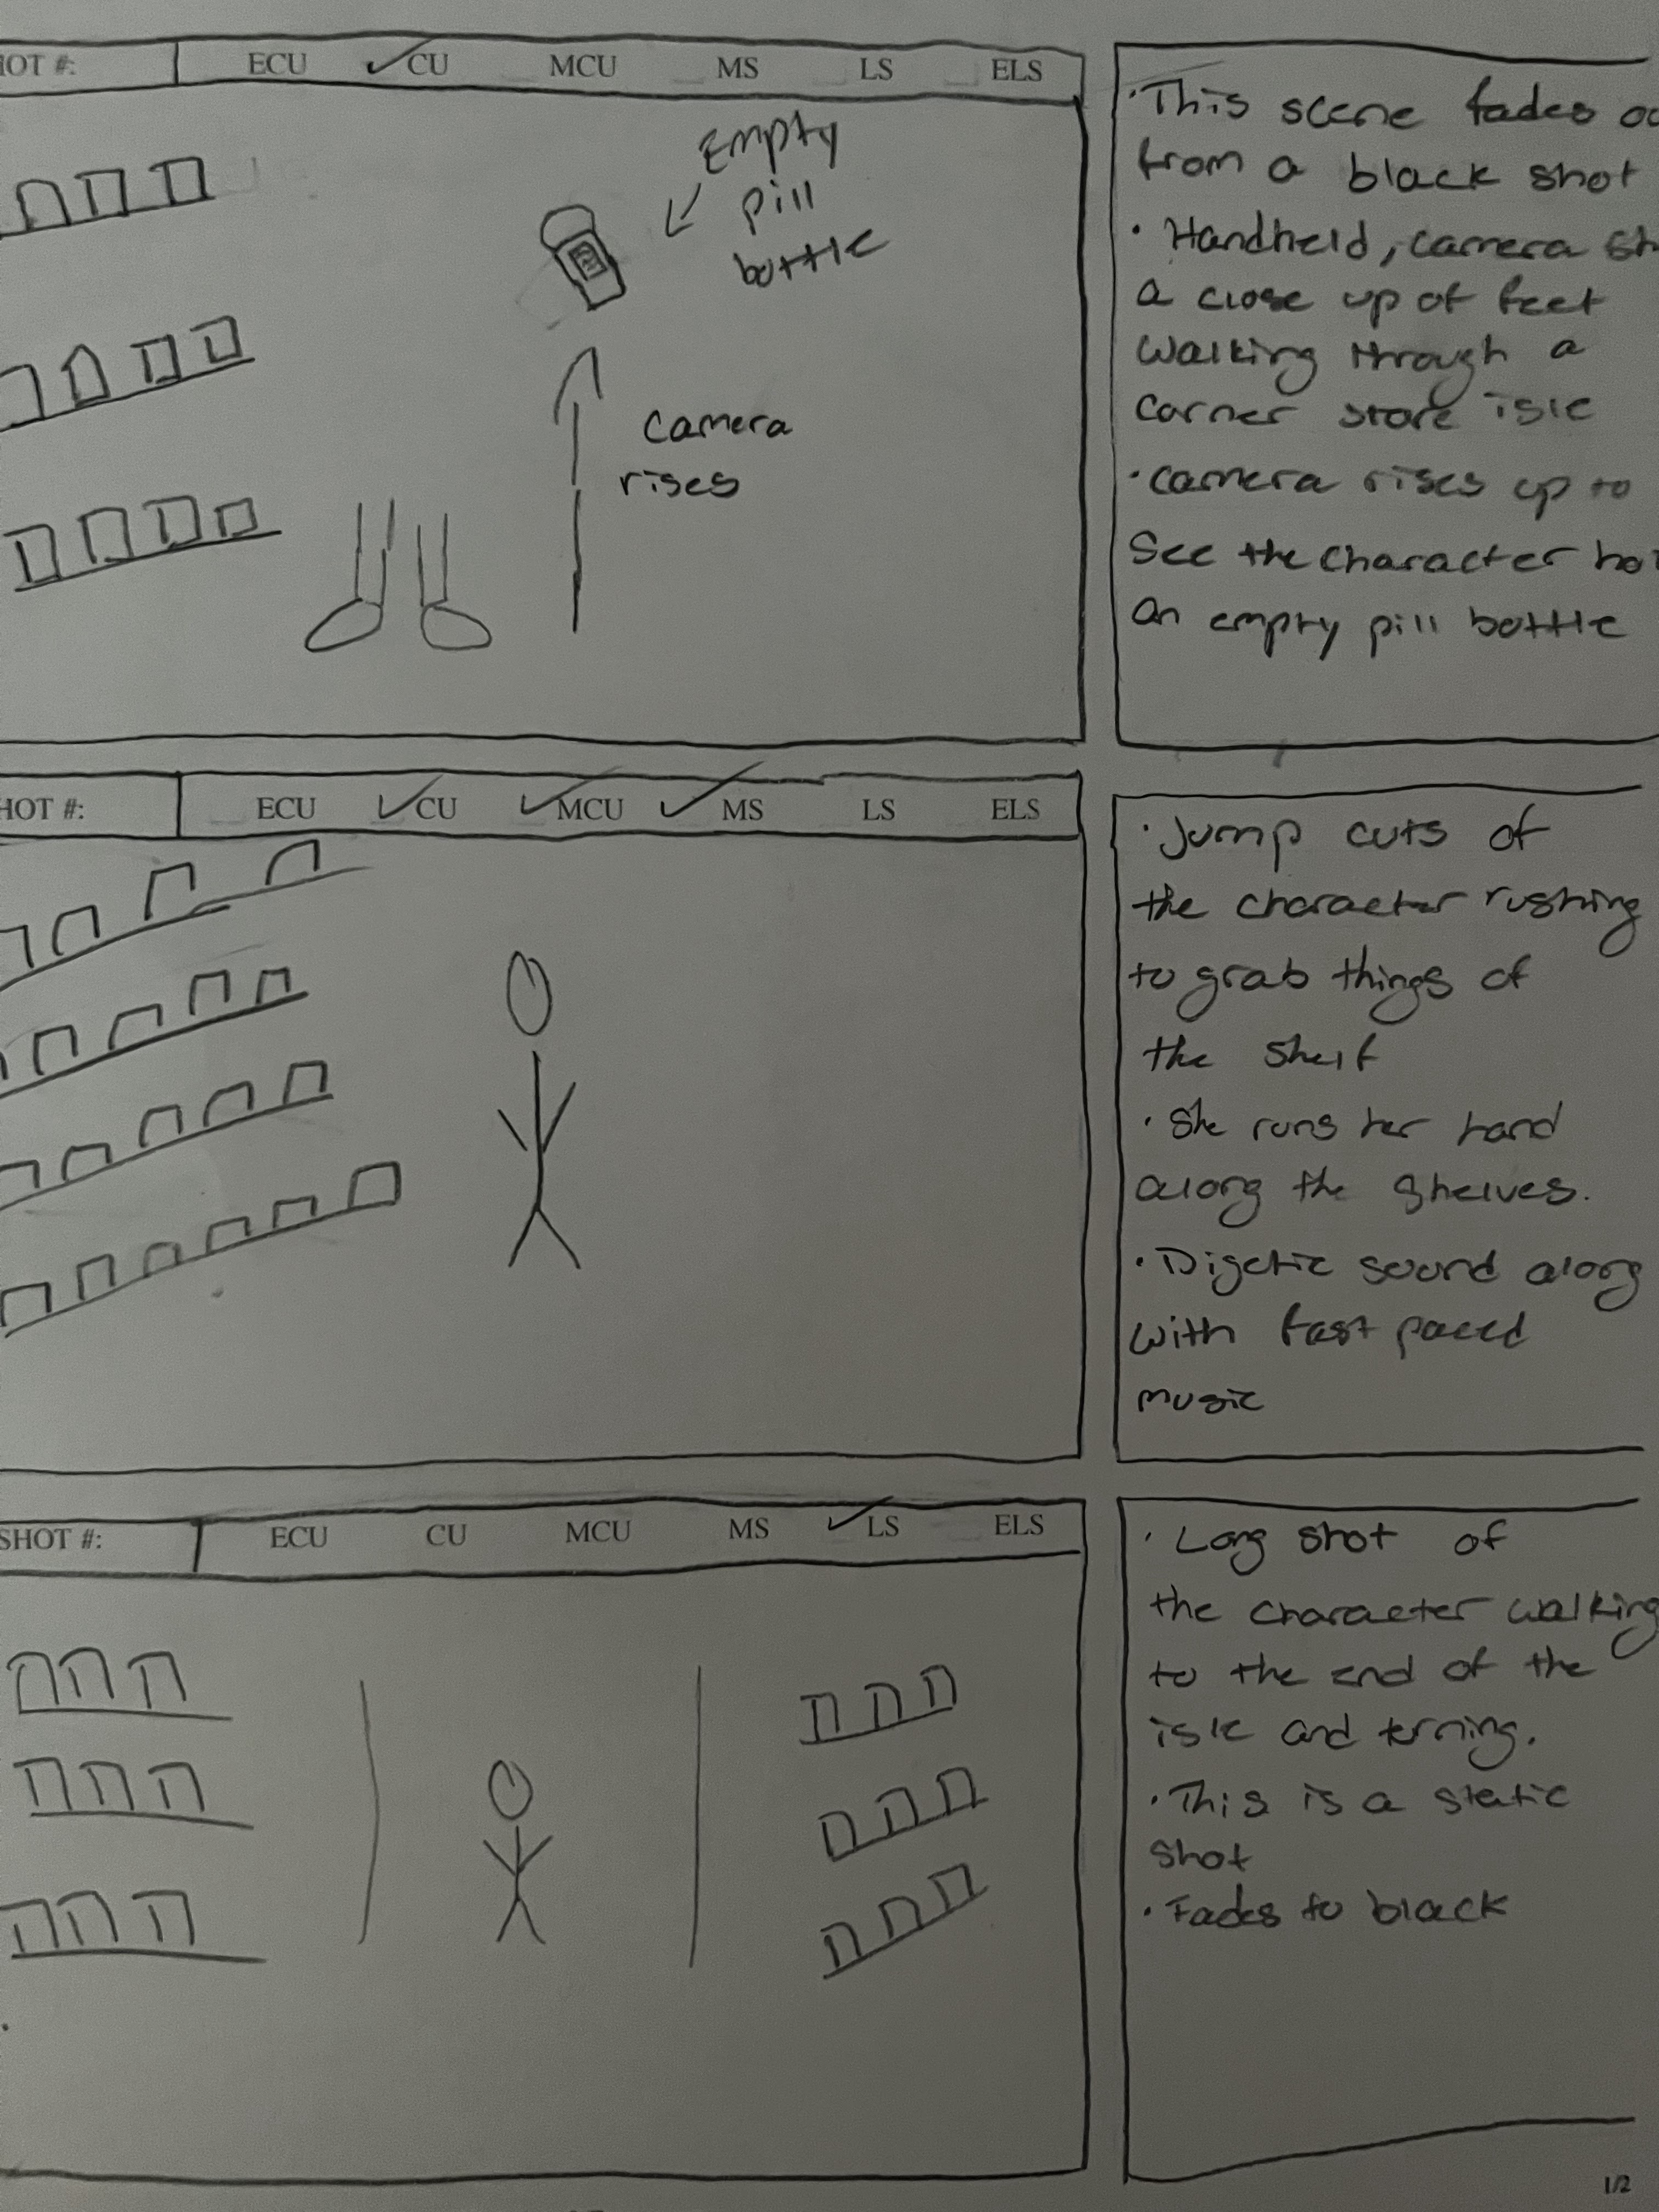 SHOT #: ECU ✓CU MCU MS LS ELS
Empty
pill
bottle
camera
rises
·This scene fades
from a black shot
· Handheld, camera
a close up of feet
walking through a
corner store isle
·camera rises up to
see the character
an empty pill bottle
HOT #: ECU ✓CU ✓MCU ✓MS LS ELS
·Jump cuts of
the character rushing
to grab things of
the shelf
·She runs her hand
along the shelves.
·Digetic sound along
with fast paced
music
SHOT #: ECU CU MCU MS ✓LS ELS
·Long shot of
the character walking
to the end of the
isle and terning.
·This is a static
shot
·Fades to black
1/2